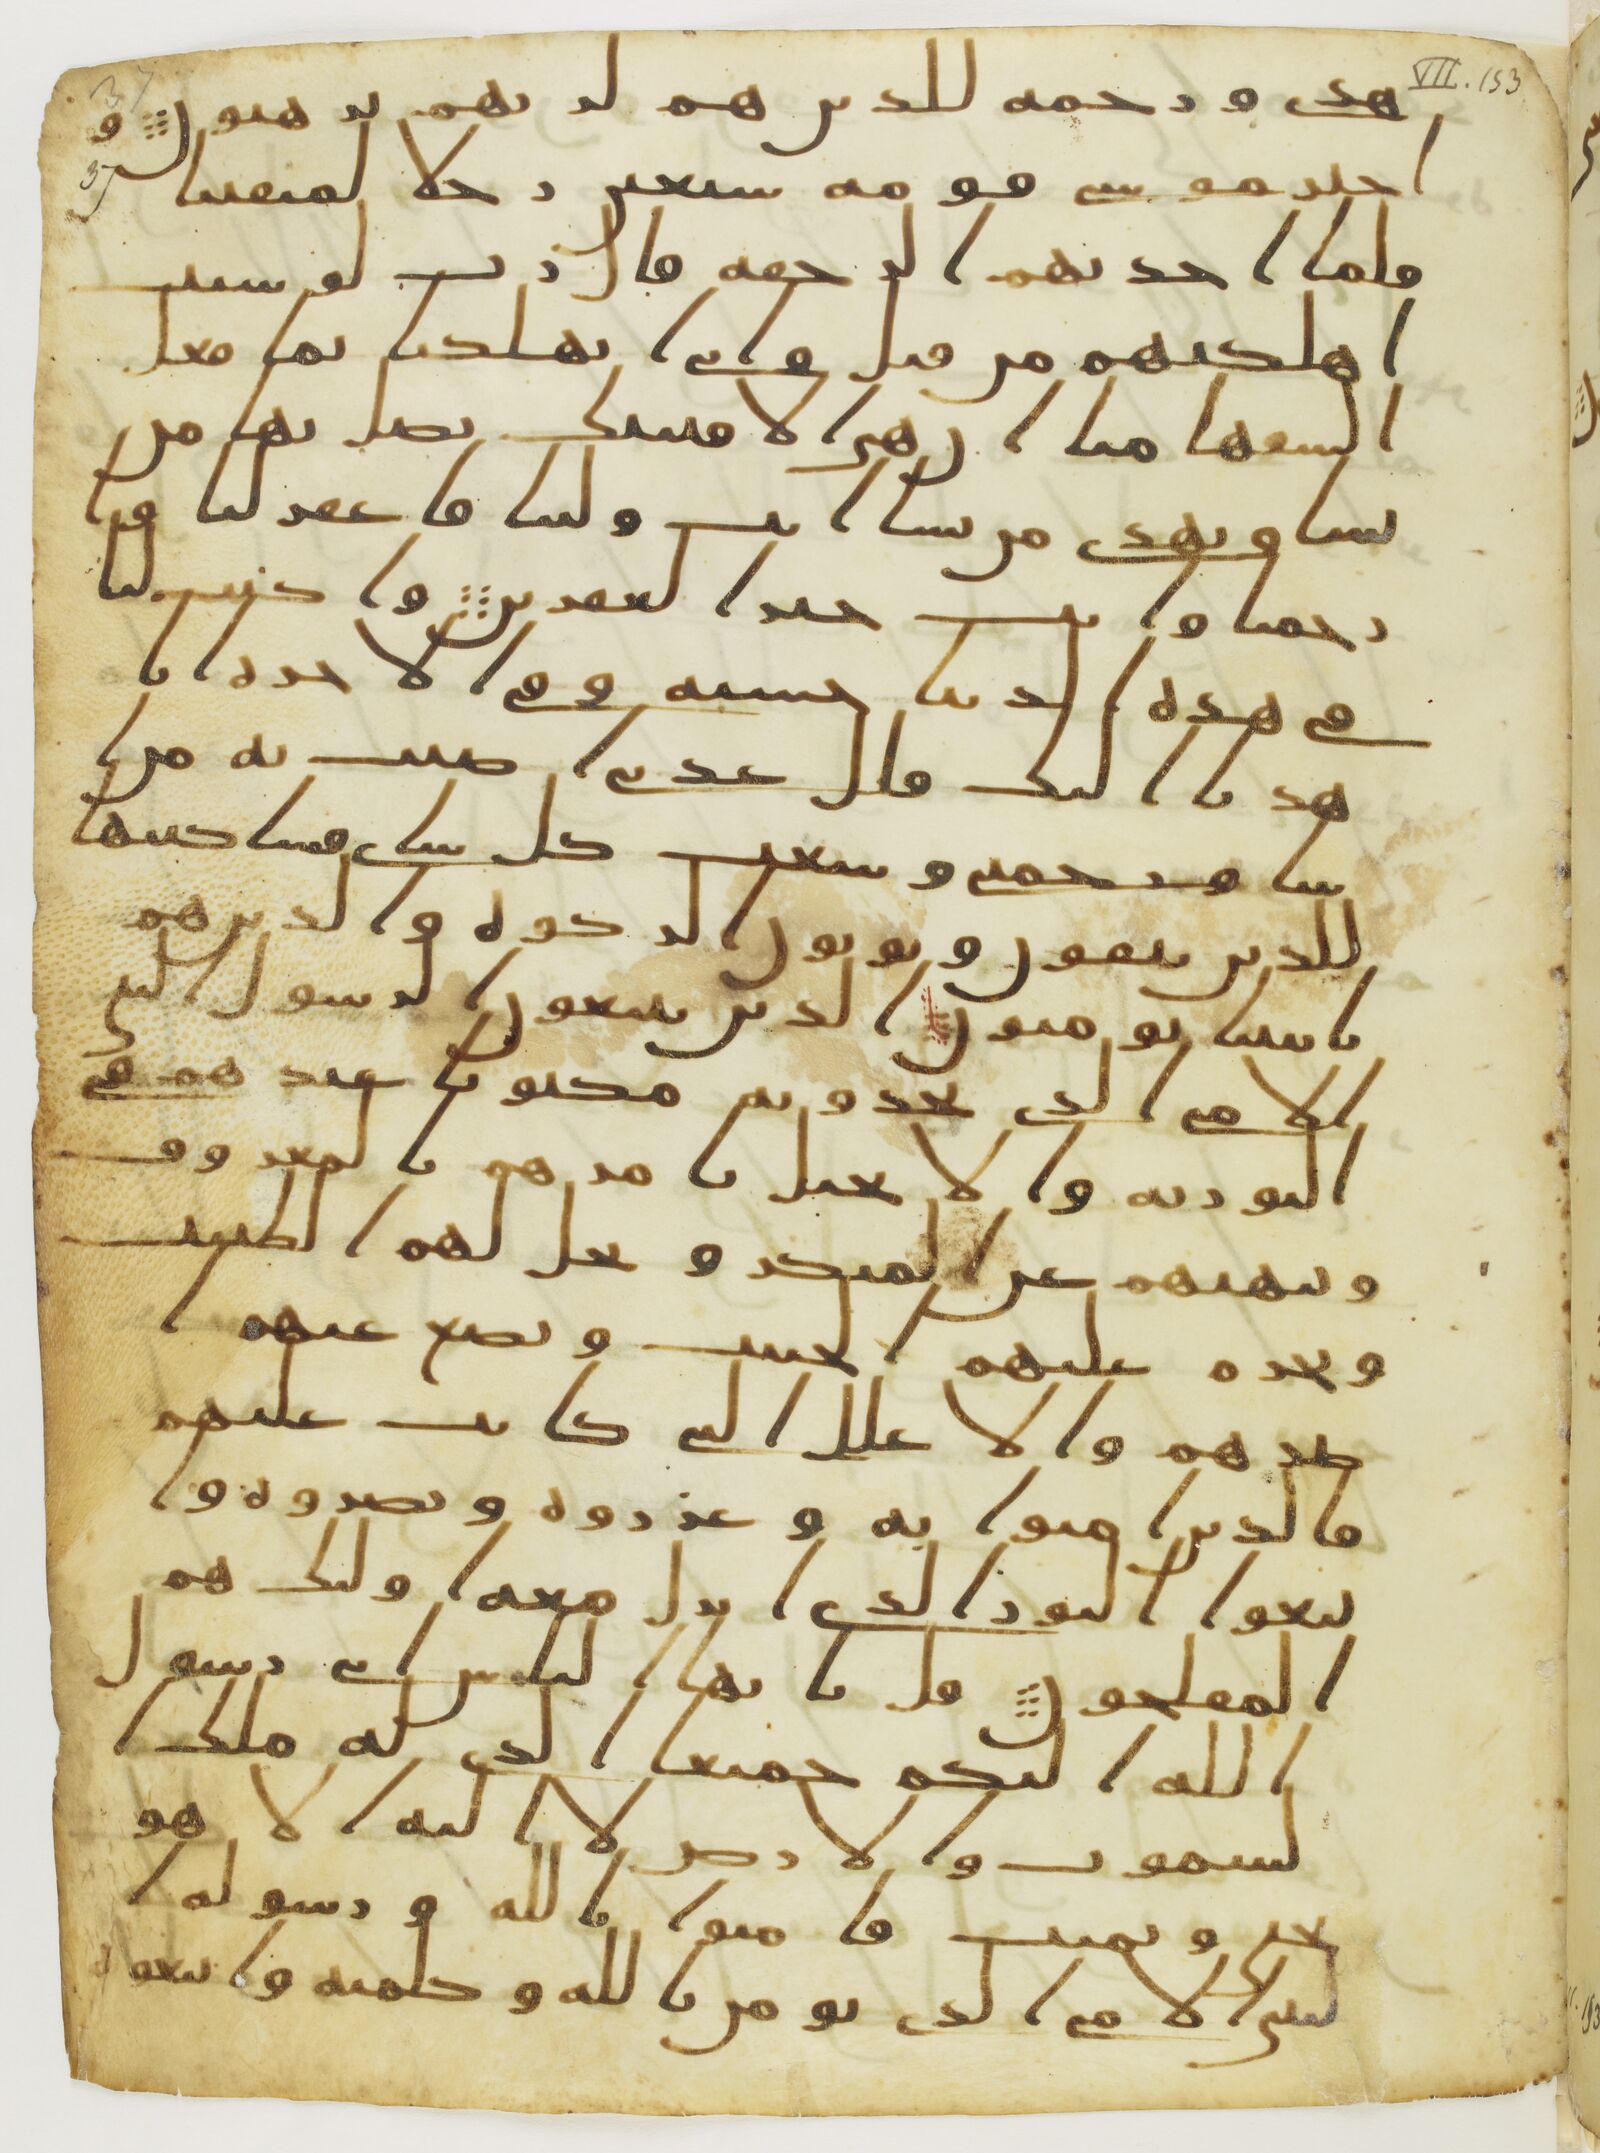 VII. 153
37
هدى ورحمة للذين هم لربهم يرهبون و
37
اختر موسى قومه سبعين رجلا لميقتنا
فلما اخذتهم الرجفة قال رب لو شيت
اهلكتهم من قبل وايي اتهلكنا بما فعل
السفها منا ان هي الا فتنتك تضل بها من
تشا وتهدي من تشا انت ولينا فاغفر لنا وا
رحمنا وانت خير الغفرين واكتب لنا
في هذه الدنيا حسنة وفي الاخرة انا
هدنا اليك قال عذبي اصيب به من ا
شا ورحمتي وسعت كل شاي فساكتبها
للذين يتقون ويوتون الزكوة والذين هم
بايتنا يومنون الذين يتبعون الرسول النبي
الامي الذي يجدونه مكتوبا عندهم في
التورية والانجيل يامرهم بالمعروف
وينهيهم عن المنكر ويحل لهم الطيبت
ويحرم عليهم الخبيث ويضع عنهم ا
صرهم والاغلل التي كانت عليهم
فالذين امنوا به وعزروه ونصروه وا
تبعوا النور الذي انزل معه اوليك هم
المفلحون قل يايها الناس اني رسول
الله اليكم جميعا الذي له ملك ا
لسموت والارض لا اليه الا هو
يحي ويميت فامنوا بالله ورسوله ا
لنبي الامي الذي يومن بالله وكلمته واتبعوه